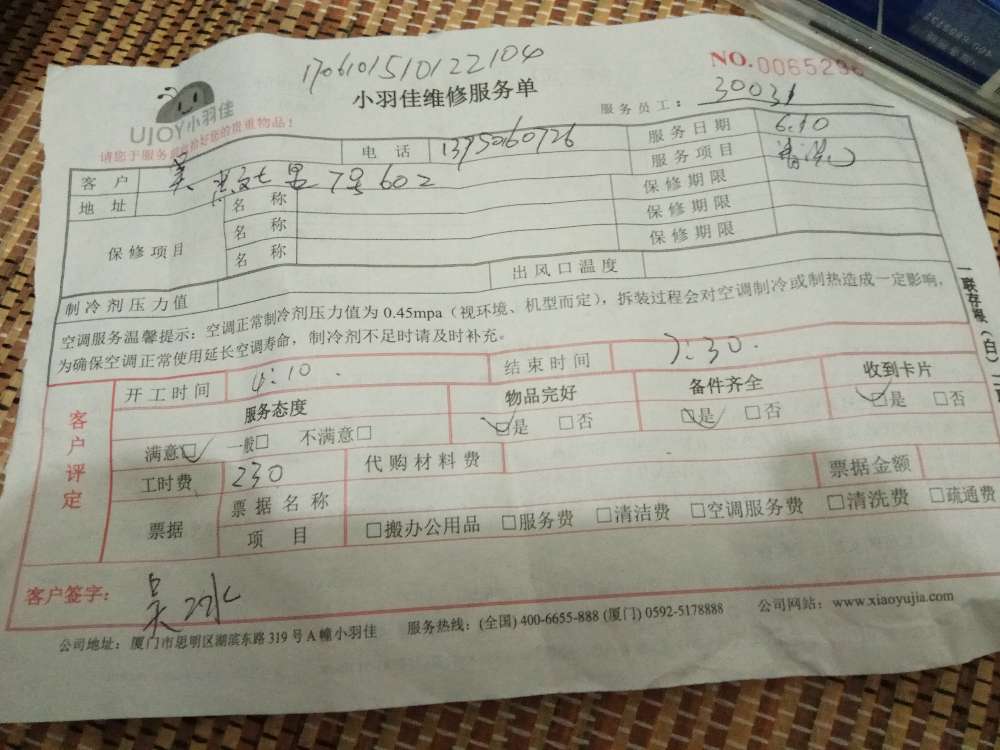 1706101510122104
NO.
小羽佳维修服务单
UJOY小羽佳
服务员工： 30031
请您于服务前收拾好您的贵重物品！
客户 吴 电话 服务日期 6.10
地址 7号602 服务项目
保修项目 名称 保修期限
名称 保修期限
名称 保修期限
制冷剂压力值 出风口温度
空调服务温馨提示：空调正常制冷剂压力值为 0.45mpa（视环境、机型而定），拆装过程会对空调制冷或制热造成一定影响，
为确保空调正常使用延长空调寿命，制冷剂不足时请及时补充。
一联存根（白）
客户评定
开工时间 结束时间
服务态度 物品完好 备件齐全 收到卡片
满意□ 一般□ 不满意□ □是 □否 □是 □否 □是 □否
工时费 230 代购材料费
票据 票据名称 票据金额
项目 □搬办公用品 □服务费 □清洁费 □空调服务费 □清洗费 □疏通费
客户签字： 吴
公司地址：厦门市思明区湖滨东路 319 号 A 幢小羽佳 服务热线：(全国) 400-6655-888 (厦门) 0592-5178888 公司网站：www.xiaoyujia.com